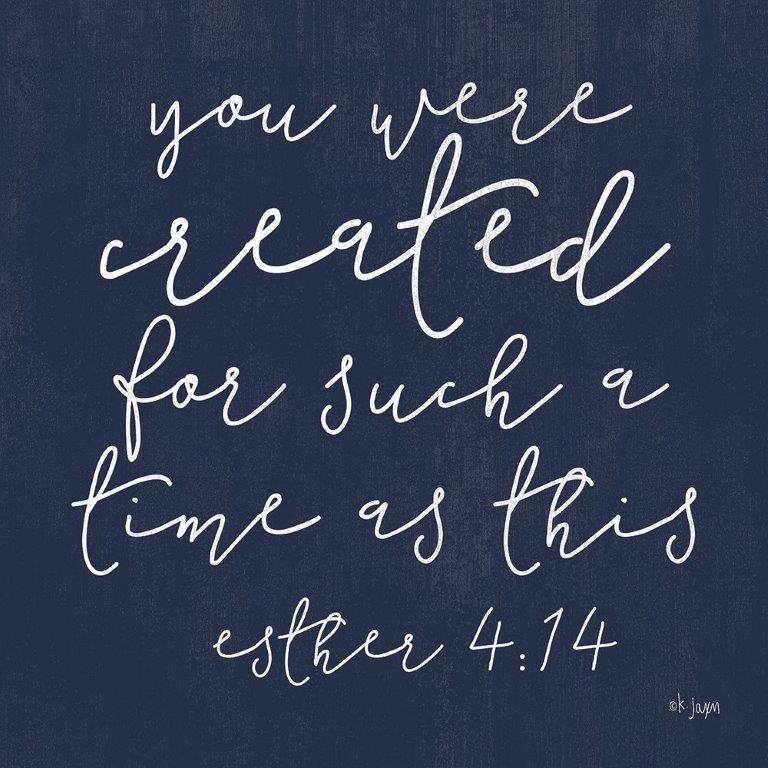 you were
created
for such a
time as this
esther 4:14
©k. jaxn